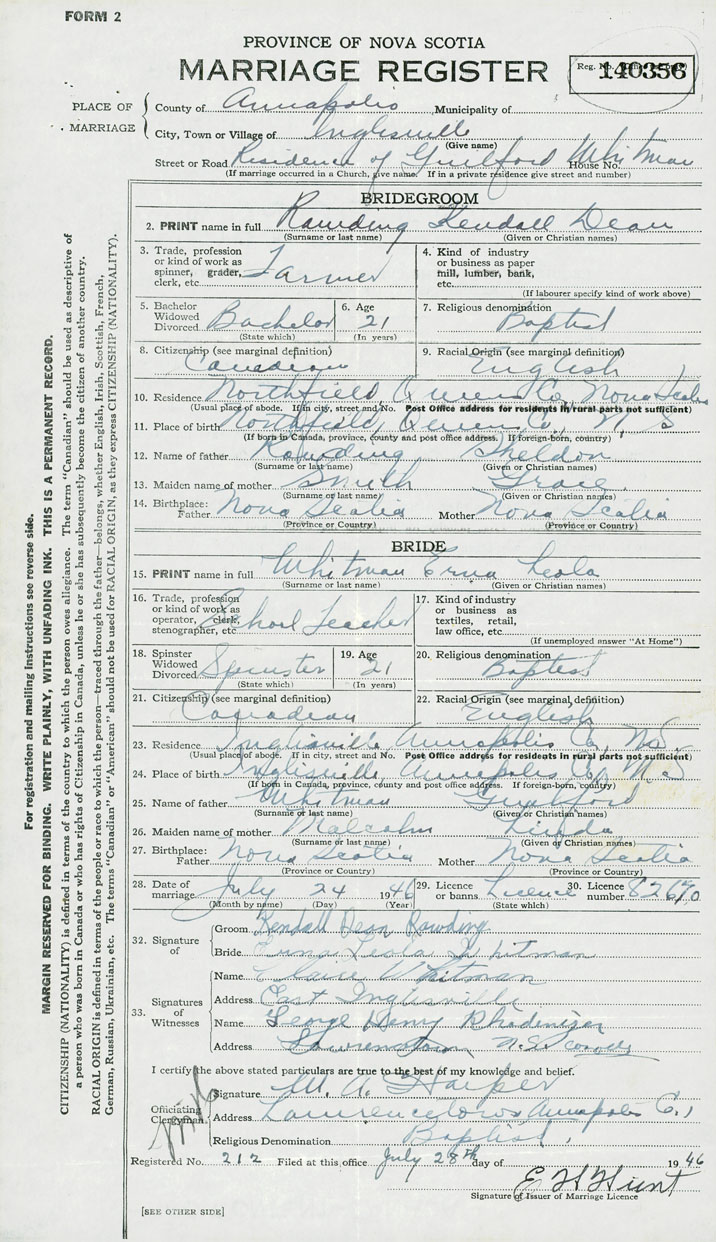 FORM 2
PROVINCE OF NOVA SCOTIA
MARRIAGE REGISTER
Reg. No.
140356
PLACE OF MARRIAGE
County of Annapolis Municipality of
City, Town or Village of Inglisville
(Give name)
Street or Road Residence of Guilford Whitman House No.
(If marriage occurred in a Church, give name. If in a private residence give street and number)
BRIDEGROOM
2. PRINT name in full Rawding Kendall Dean
(Surname or last name) (Given or Christian names)
3. Trade, profession or kind of work as spinner, grader, clerk, etc. Farmer
4. Kind of industry or business as paper mill, lumber, bank, etc.
(If labourer specify kind of work above)
5. Bachelor Widowed Divorced Bachelor (State which)
6. Age 21 (In years)
7. Religious denomination Baptist
8. Citizenship (see marginal definition) Canadian
9. Racial Origin (see marginal definition) English
10. Residence Northfield Queens Co., Nova Scotia
(Usual place of abode. If in city, street and No. Post Office address for residents in rural parts not sufficient)
11. Place of birth Northfield, Queens Co., N. S
(If born in Canada, province, county and post office address. If foreign-born, country)
12. Name of father Rawding Sheldon
(Surname or last name) (Given or Christian names)
13. Maiden name of mother Smith Grace
(Surname or last name) (Given or Christian names)
14. Birthplace: Father Nova Scotia Mother Nova Scotia
(Province or Country) (Province or Country)
BRIDE
15. PRINT name in full Whitman Erna Leola
(Surname or last name) (Given or Christian names)
16. Trade, profession or kind of work as operator, clerk, stenographer, etc. School Teacher
17. Kind of industry or business as textiles, retail, law office, etc.
(If unemployed answer "At Home")
18. Spinster Widowed Divorced Spinster (State which)
19. Age 21 (In years)
20. Religious denomination Baptist
21. Citizenship (see marginal definition) Canadian
22. Racial Origin (see marginal definition) English
23. Residence Inglisville Annapolis Co., N.S.
(Usual place of abode. If in city, street and No. Post Office address for residents in rural parts not sufficient)
24. Place of birth Inglisville, Annapolis Co., N.S
(If born in Canada, province, county and post office address. If foreign-born, country)
25. Name of father Whitman Guilford
(Surname or last name) (Given or Christian names)
26. Maiden name of mother Malcolm Linda
(Surname or last name) (Given or Christian names)
27. Birthplace: Father Nova Scotia Mother Nova Scotia
(Province or Country) (Province or Country)
28. Date of marriage July 24 1946
(Month by name) (Day) (Year)
29. Licence or banns Licence (State which)
30. Licence number 82690
32. Signature of
Groom Kendall Dean Rawding
Bride Erna Leola Whitman
33. Signatures of Witnesses
Name Whitman
Address East Inglisville
Name George Henry Rhodenizer
Address Lawrencetown N.S.
I certify the above stated particulars are true to the best of my knowledge and belief.
Officiating Clergyman
Signature M. A. Harper
Address Lawrencetown Annapolis Co.,
Religious Denomination Baptist
Registered No. 212 Filed at this office July 28th day of 1946
E H Hunt
Signature of Issuer of Marriage Licence
[SEE OTHER SIDE]
For registration and mailing instructions see reverse side.
MARGIN RESERVED FOR BINDING. WRITE PLAINLY, WITH UNFADING INK. THIS IS A PERMANENT RECORD.
CITIZENSHIP (NATIONALITY) is defined in terms of the country to which the person owes allegiance. The term "Canadian" should be used as descriptive of
a person who was born in Canada or who has rights of Citizenship in Canada, unless he or she has subsequently become the citizen of another country.
RACIAL ORIGIN is defined in terms of the people or race to which the person—traced through the father—belongs, whether English, Irish, Scottish, French,
German, Russian, Ukrainian, etc. The terms "Canadian" or "American" should not be used for RACIAL ORIGIN, as they express CITIZENSHIP (NATIONALITY).